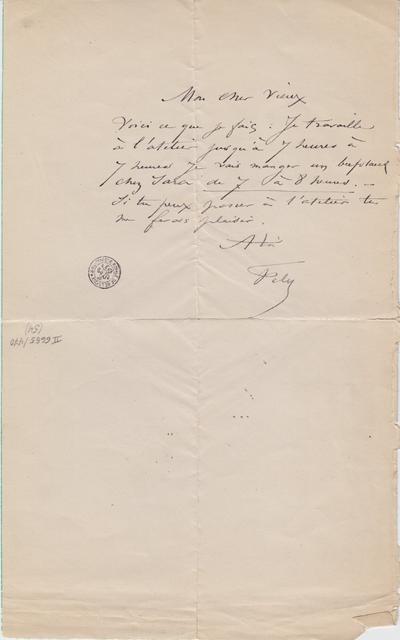 Mon cher Vieux
Voici ce que je fais : Je travaille
à l'atelier jusqu'à 7 heures à
7 heures je vais manger un bifstack
chez Sara de 7 à 8 heures. —
Si tu peux passer à l'atelier tu
me feras plaisir.
A toi
Fély
(54)
II 6655/440